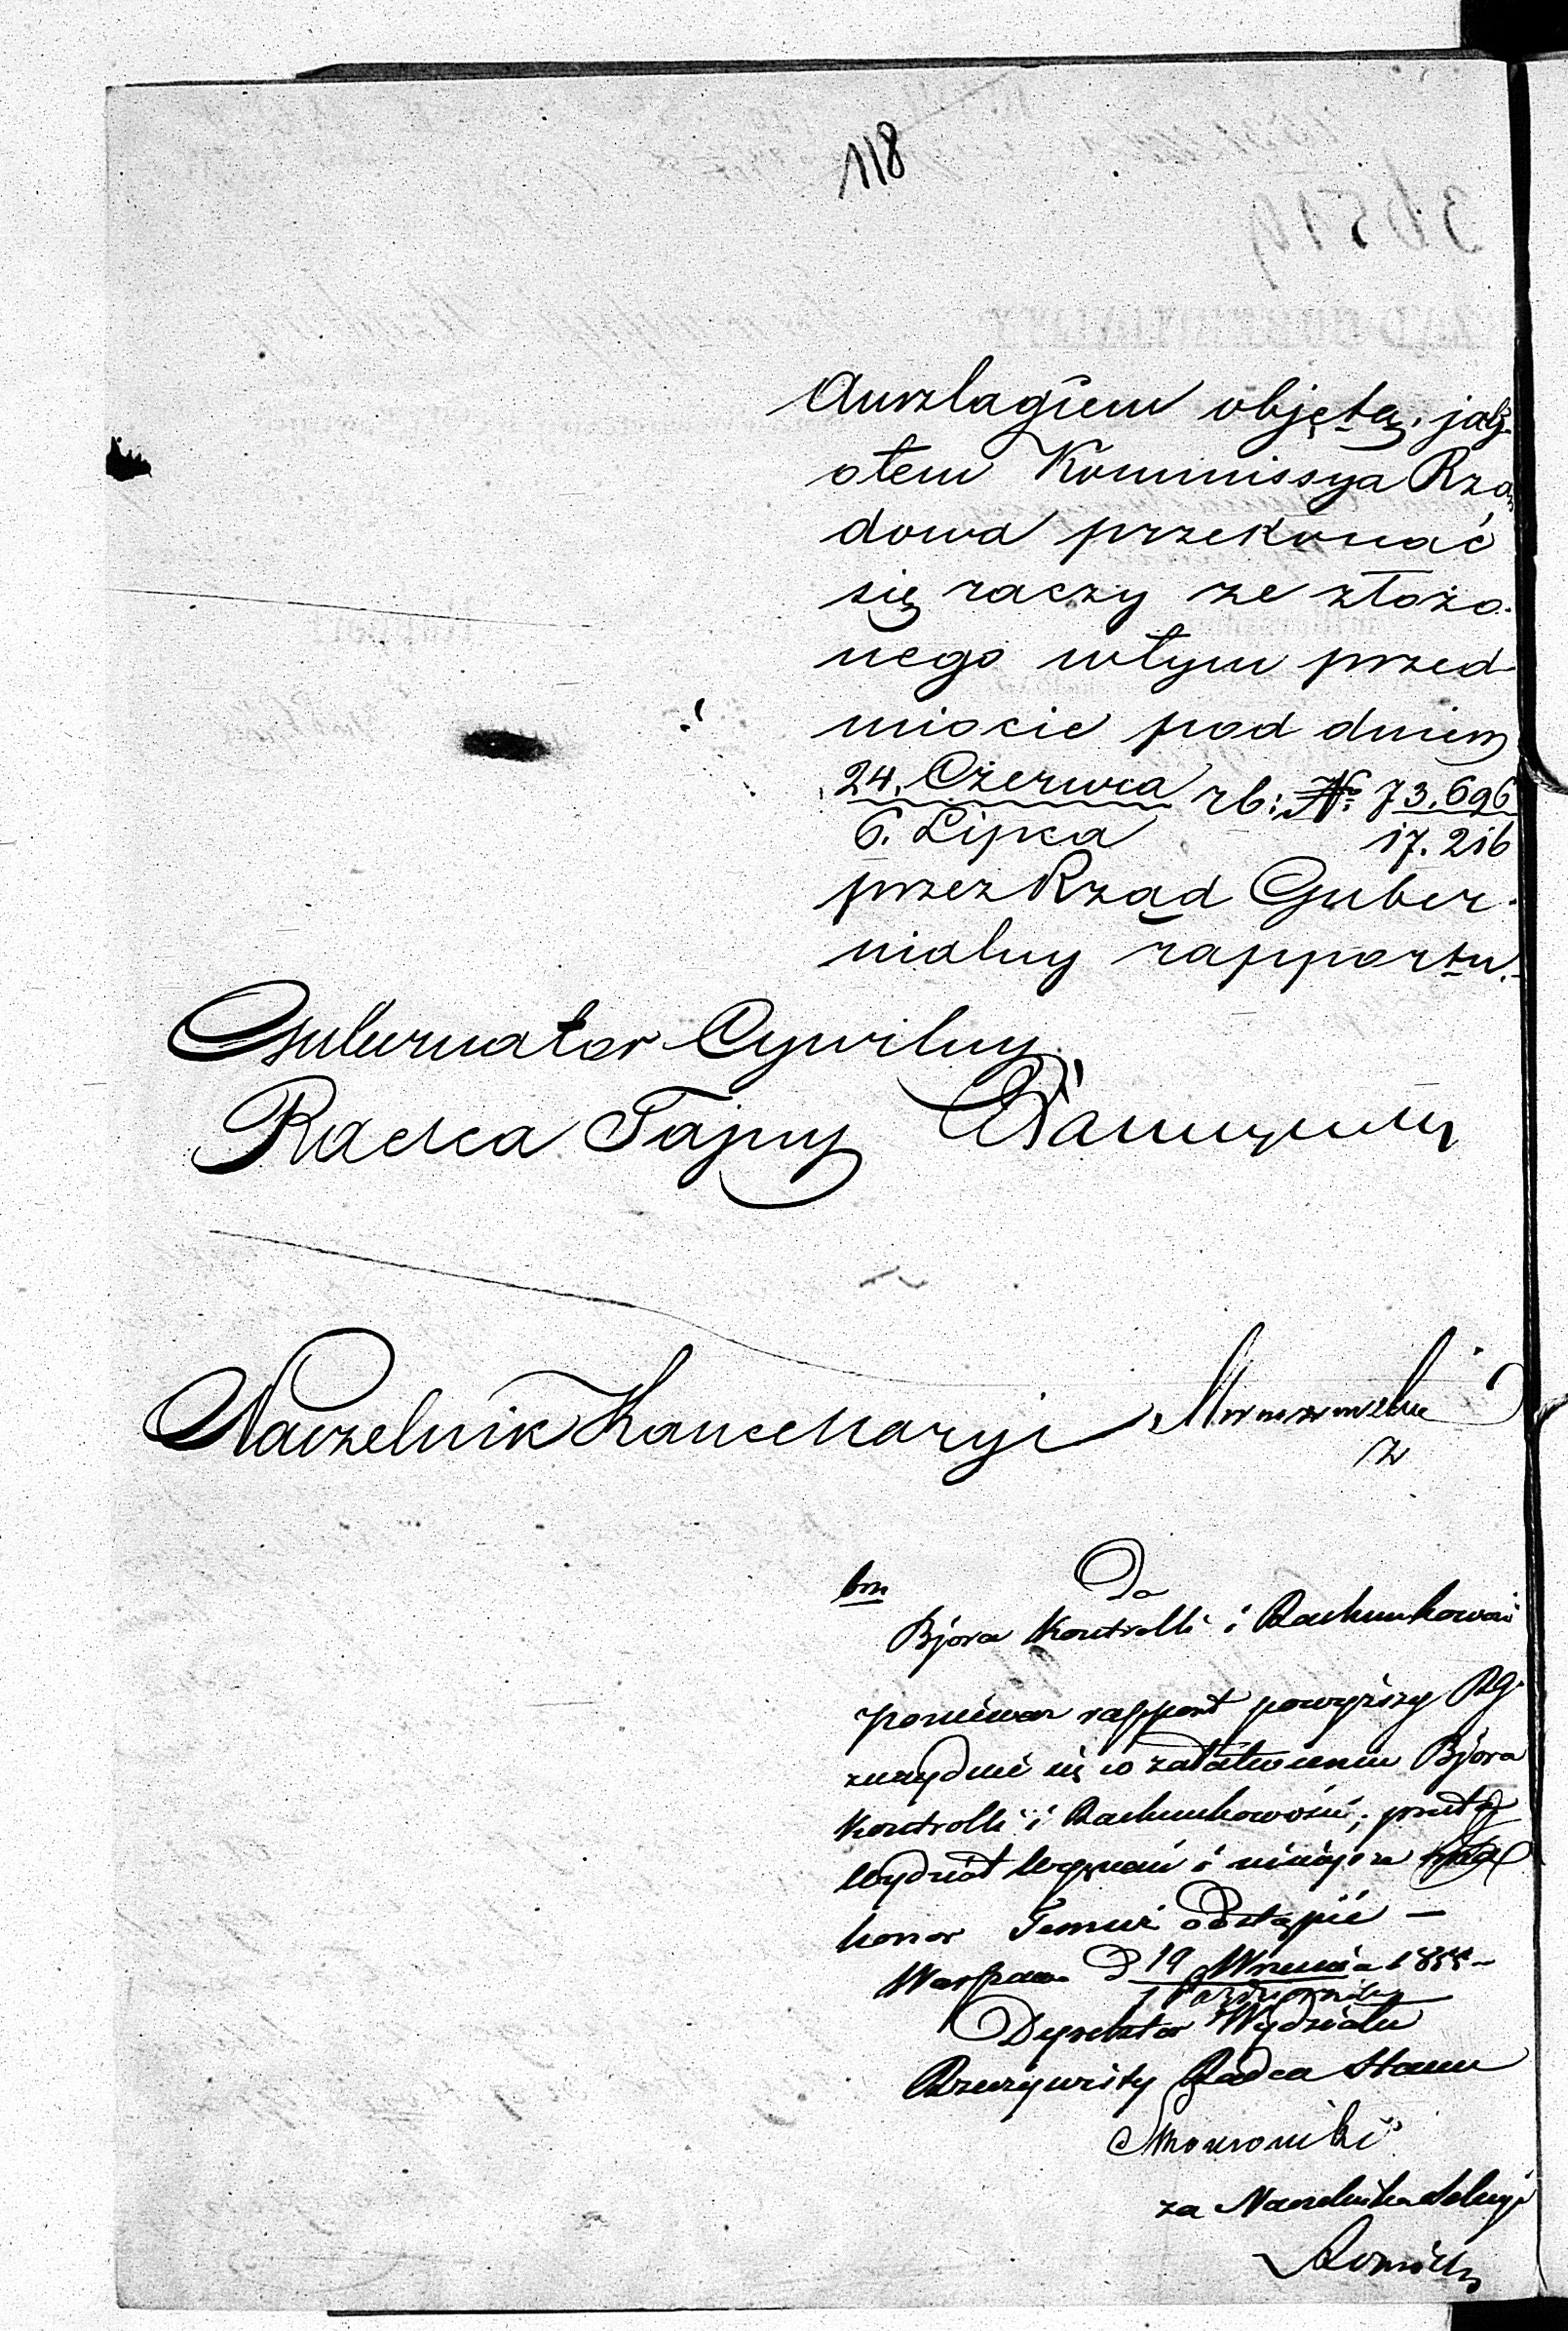 118
Anszlagiem objętą, jak
o tem Kommissya Rzą
dowa przekonać
się raczy ze złożo
nego w tym przed
miocie pod dniem
24. Czerwca rb: N° 73.696
6. Lipca 17.216
przez Rząd Guber
nialny rapportu.
Gubernator Cywilny
Radca Tajny
Naczelnik Kancellaryi
Do
Bjóra Kontrolli i Rachunkowości
ponieważ rapport powyższy RG.
znayduie się w załatwieniu Bjóra
Kontrolli i Rachunkowości, przeto
Wydział i ninieysze ma
honor Temuż odstąpić —
Warszawa D 19 Września 1855 —
1 Października
Dyrektor Wydziału
Rzeczywisty Radca Stanu
za Naczelnika Sekcyi